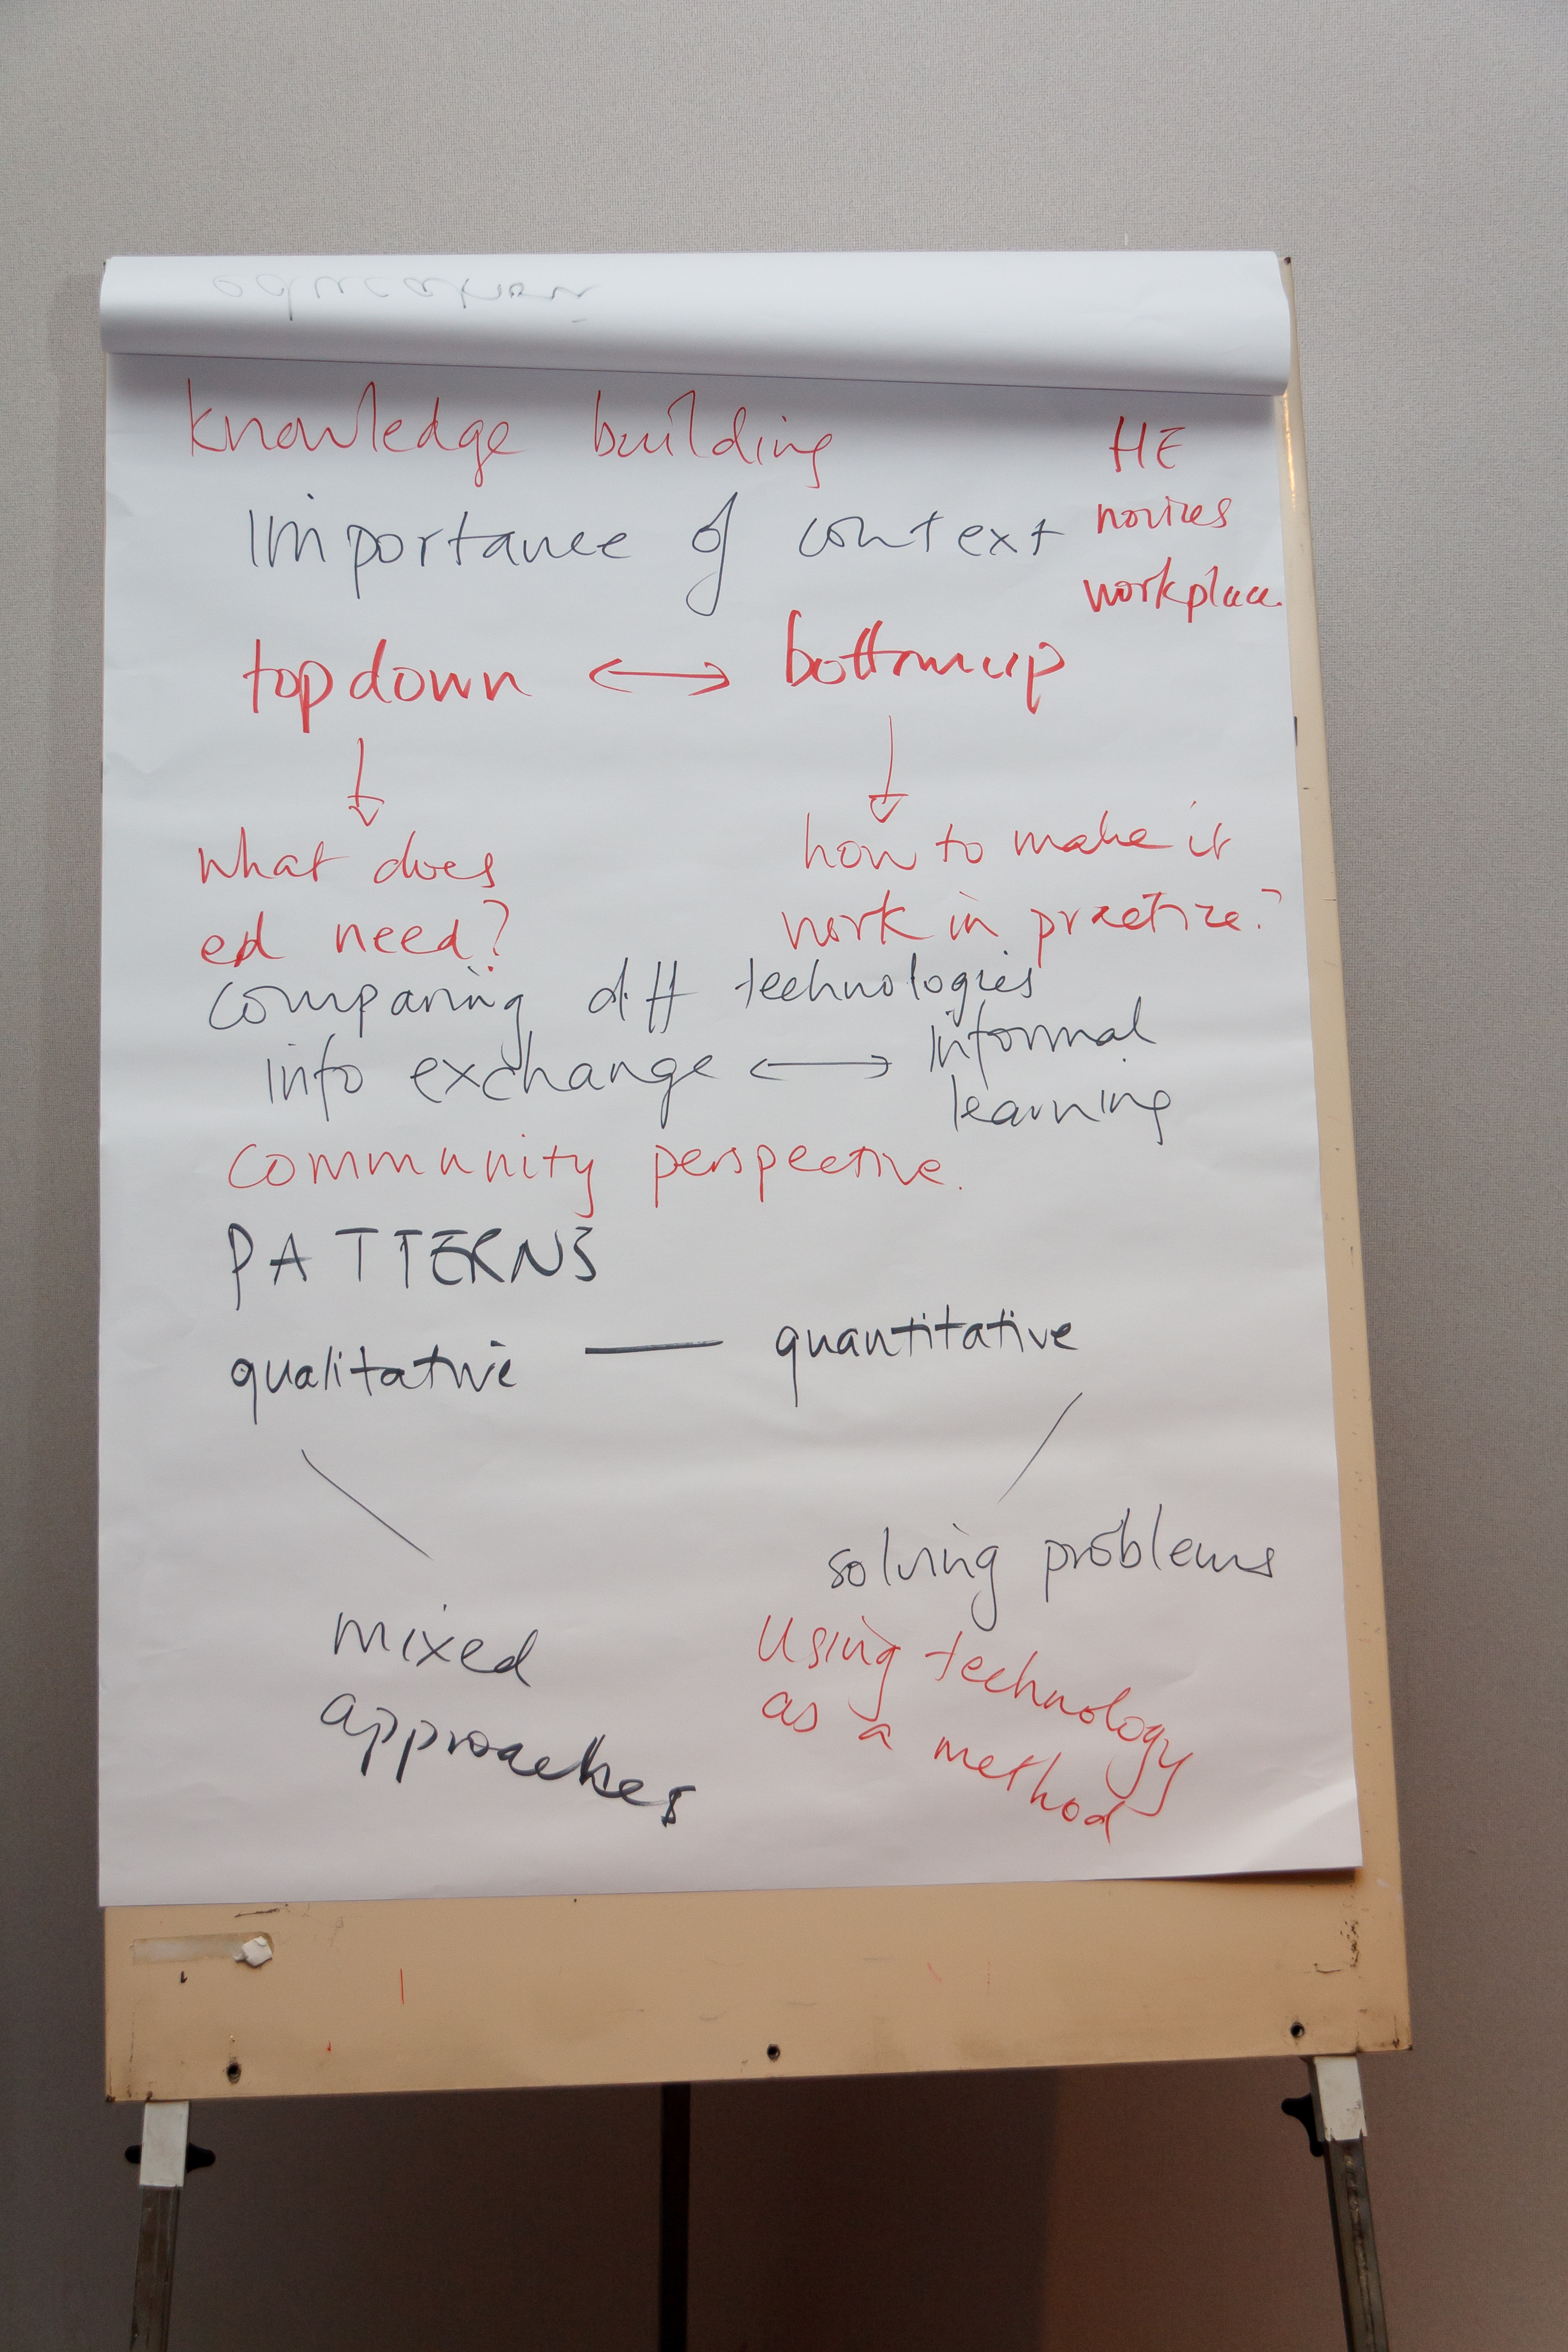 education
knowledge building
HE
importance of context
novices
workplace
top down ↔ bottom up
what does
ed need?
how to make it
work in practice?
comparing diff technologies
info exchange ↔ informal
learning
community perspective.
PATTERNS
qualitative — quantitative
solving problems
mixed
approaches
using technology
as a method